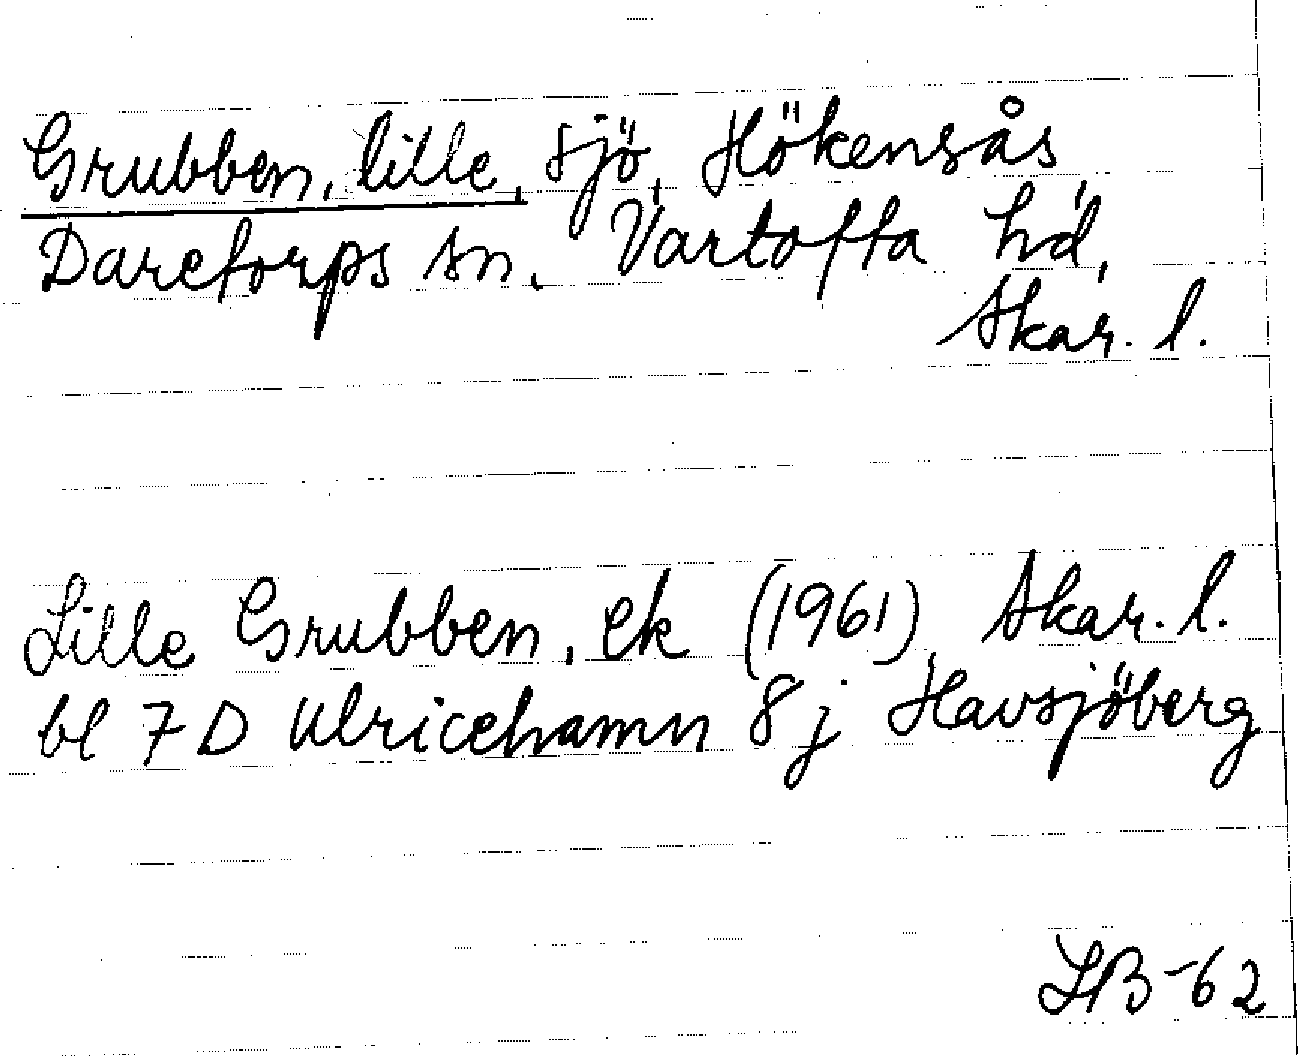 Grubben, lille, sjö, Hökensås
Daretorps sn. Vartofta hd,
Skar. l.
Lille Grubben, ek (1961), Skar. l.
bl 7 D Ulricehamn 8 j Havsjöberg
LB-62